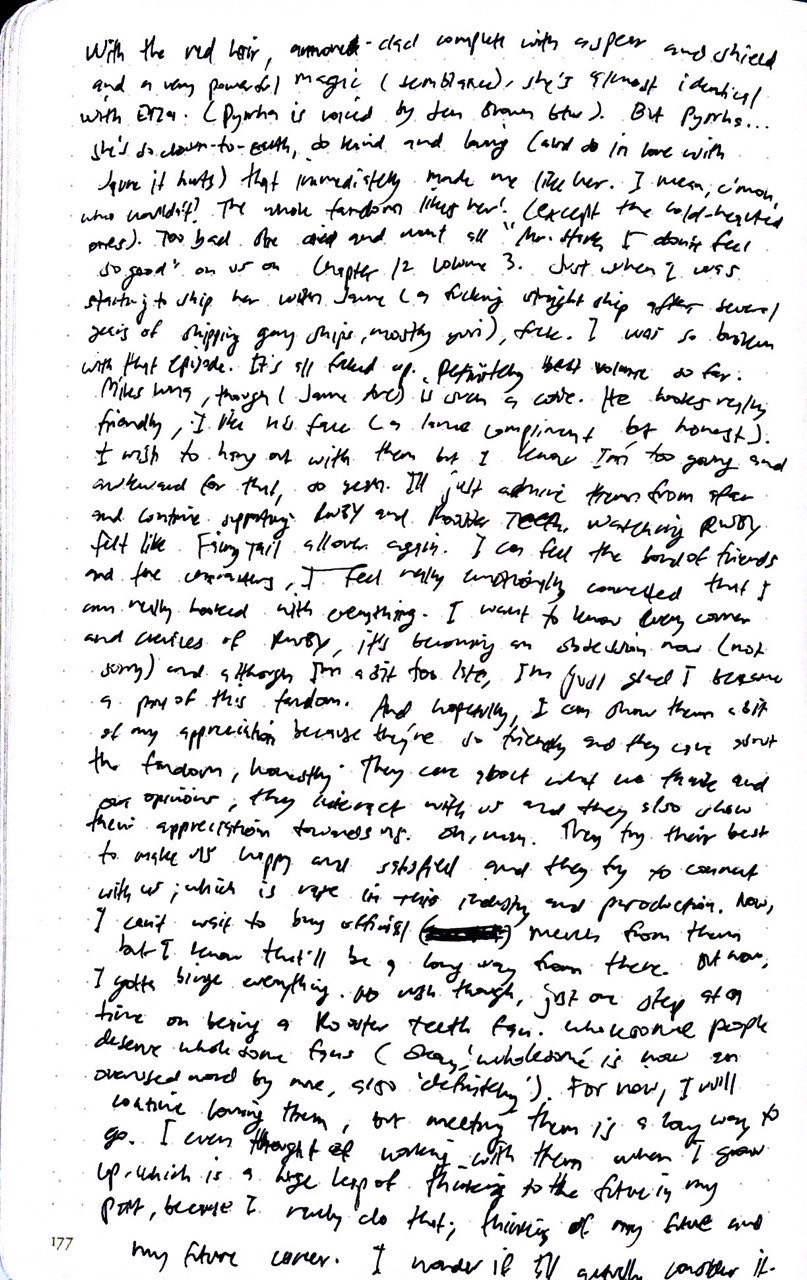 With the red hair, armored-clad complete with a spear and shield
and a very powerful magic (semblance), she's almost identical
with Erza. (Pyrrha is voiced by Jen Brown btw). But Pyrrha...
she's so down-to-earth, so kind and loving (and so in love with
Jaune it hurts) that immediately made me like her. I mean, c'mon,
who wouldn't? The whole fandom likes her! (except the cold-hearted
ones). Too bad she died and went all "Mr. Stark I don't feel
so good" on us on Chapter 12 Volume 3. Just when I was
starting to ship her with Jaune (a fucking straight ship after several
years of shipping gay ships, mostly yuri), fuck. I was so broken
with that episode. It's all fucked up. Definitely best volume so far.
Miles Luna, though (Jaune Arc) is such a cutie. He looks really
friendly, I like his face (a lame compliment but honest).
I wish to hang out with them but I know I'm too young and
awkward for that, so yeah. I'll just admire them from afar
and continue supporting RWBY and Rooster Teeth. Watching RWBY
felt like Fairy Tail all over again. I can feel the bond of friends
and the characters, I feel really emotionally connected that I
am really hooked with everything. I want to know every corner
and crevices of RWBY, it's becoming an obsession now (not
sorry) and although I'm a bit too late, I'm just glad I became
a part of this fandom. And hopefully, I can show them a bit
of my appreciation because they're so friendly and they care about
the fandom, honestly. They care about what we think and
our opinions, they interact with us and they also show
their appreciation towards us. Oh, man. They try their best
to make us happy and satisfied and they try to connect
with us; which is rare in this industry and production. Now,
I can't wait to buy official merch from them
but I know that'll be a long way from there. But now,
I gotta binge everything. No rush though, just one step at a
time on being a Rooster Teeth fan. Wholesome people
deserve wholesome fans (okay, 'wholesome' is now an
overused word by me, also 'definitely'). For now, I will
continue loving them, but meeting them is a long way to
go. I even thought of working with them when I grow
up, which is a huge leap of thinking to the future in my
part, because I rarely do that; thinking of my future and
my future career. I wonder if I'll actually consider it.
177